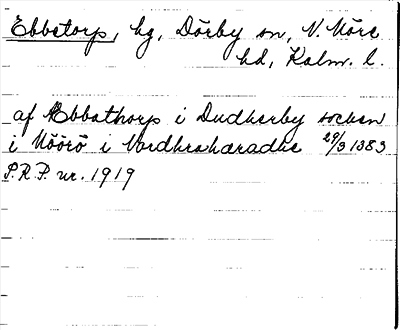 Ebbetorp, hg, Dörby sn, N. Möre
hd, Kalm. l.
af Æbbathorp i Dudherby socken
i Möörö i Nordhrahäradhe 29/3 1383
P.R.P. nr. 1919